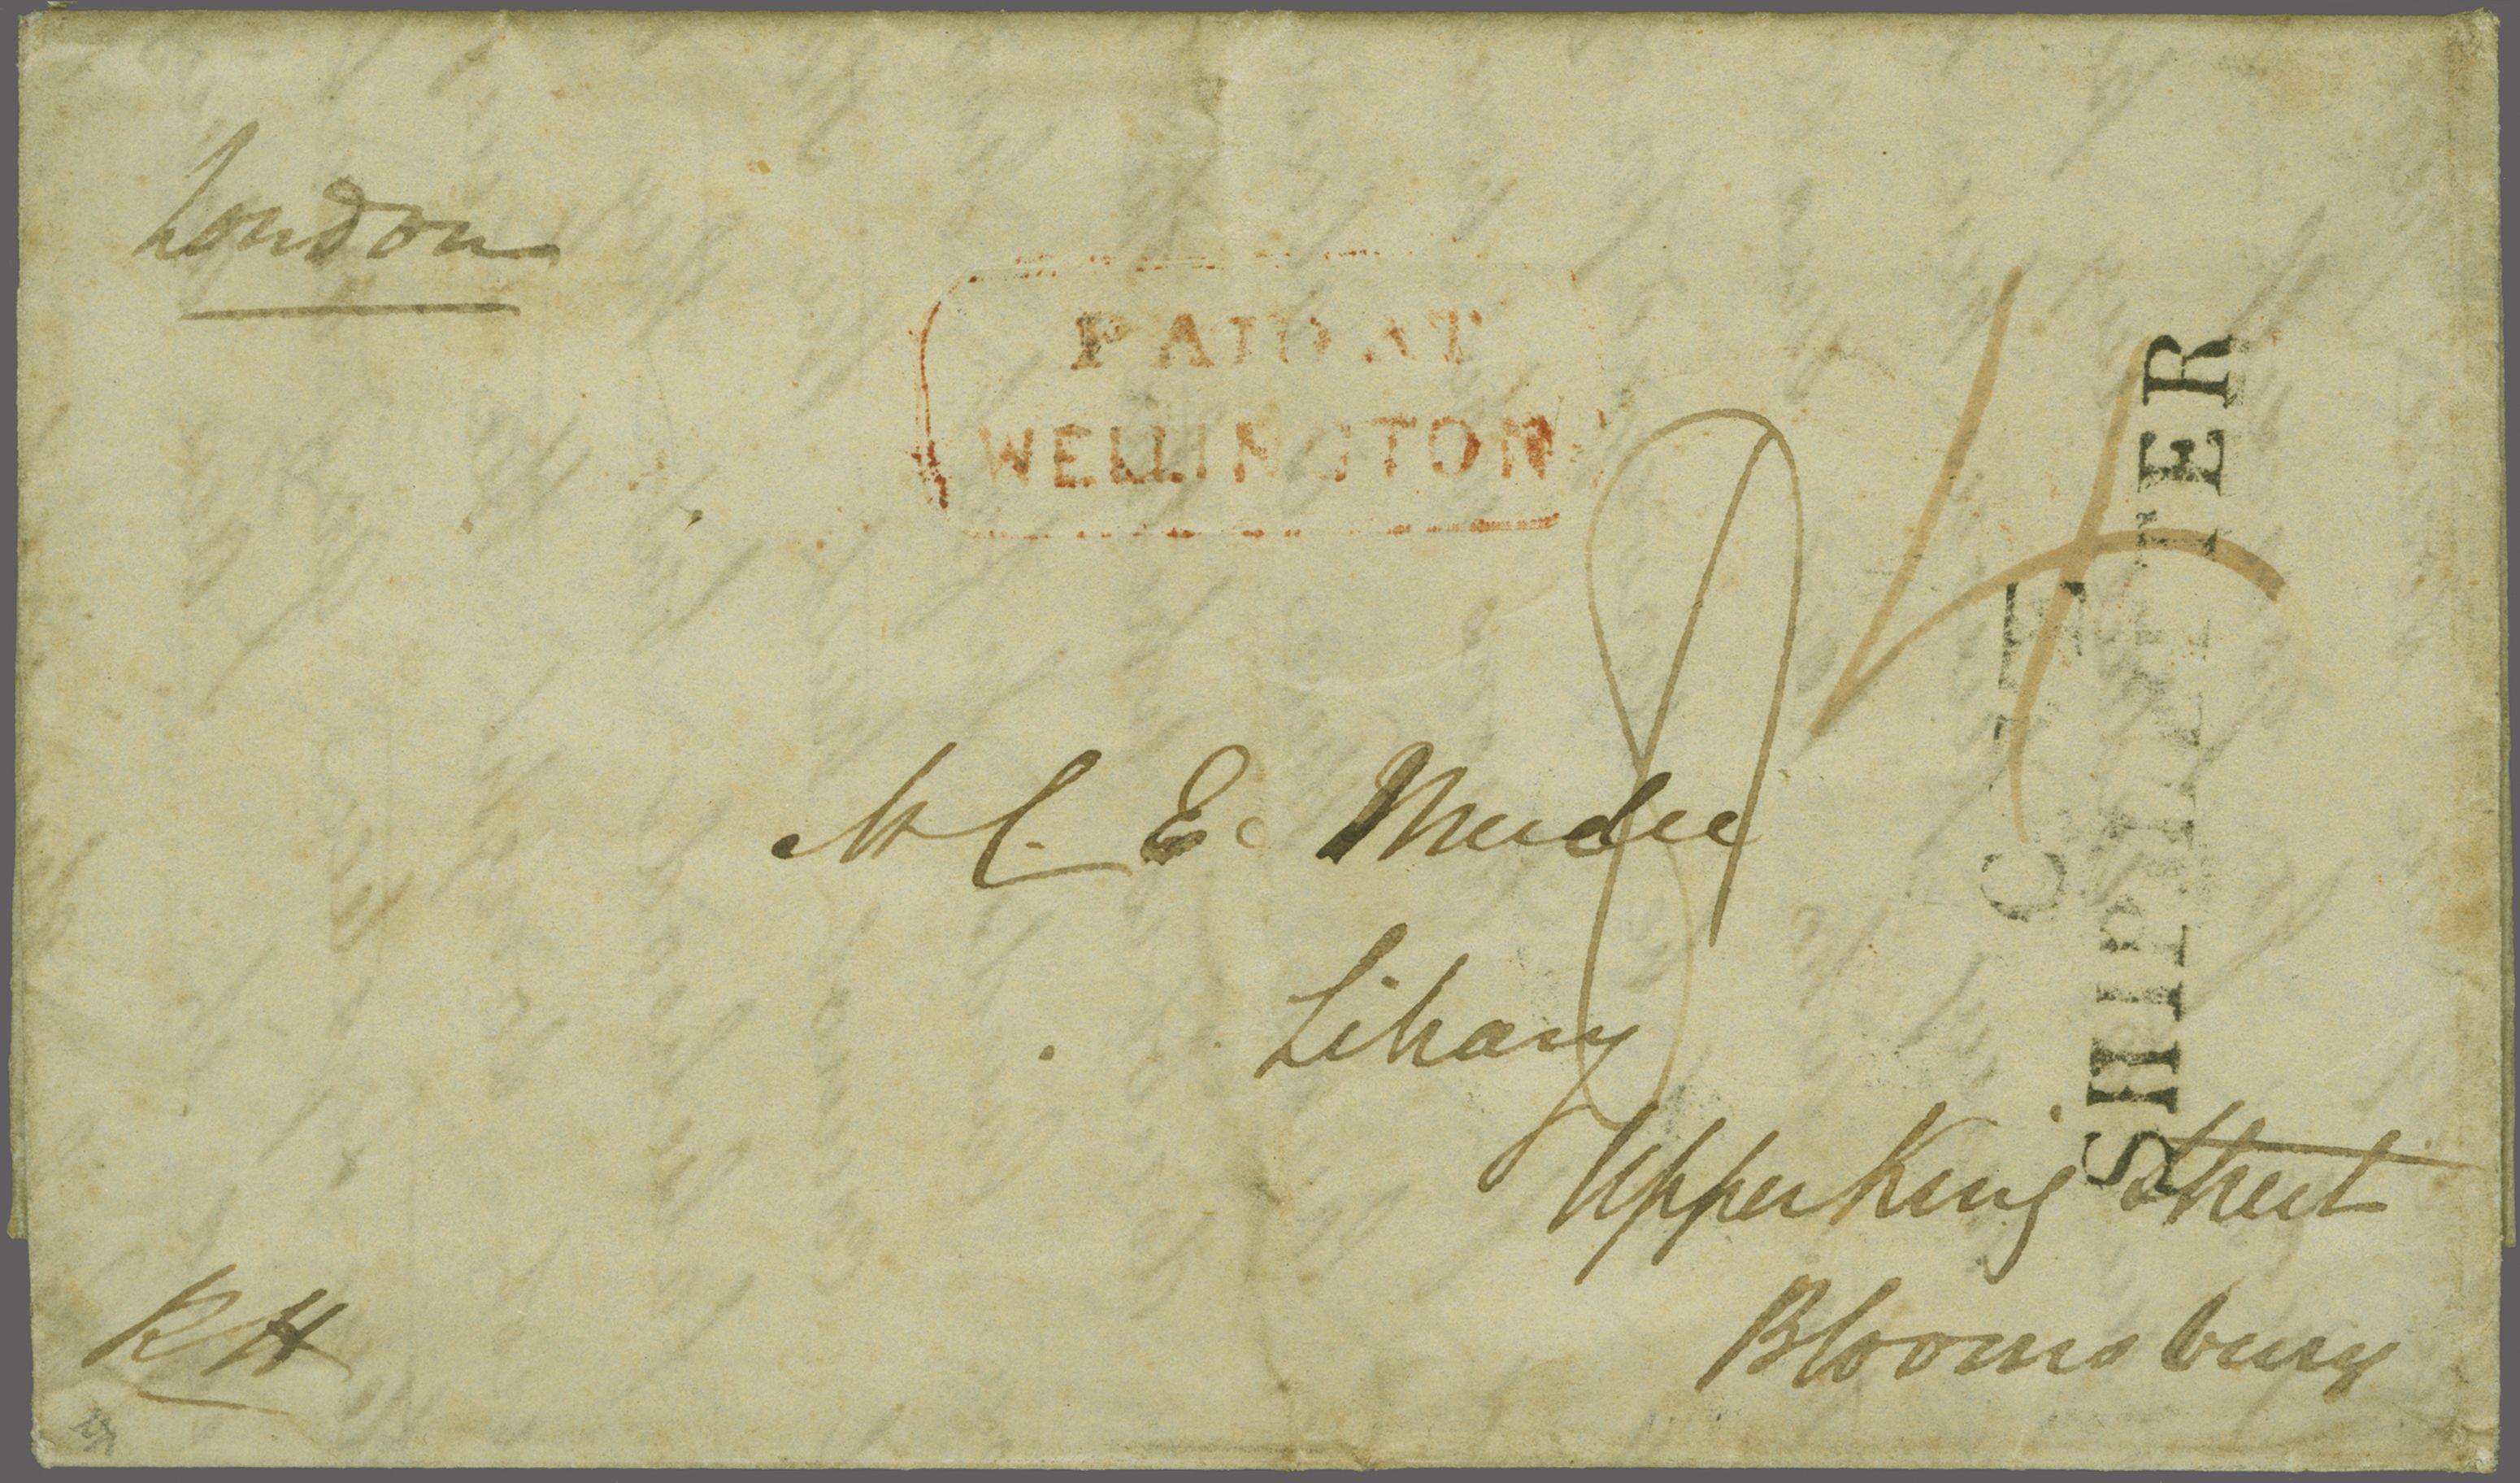 London
PAID AT
WELLINGTON
4
8
SHIP LETTER
Mr C. E. Mudie
Library
Upper King Street
Bloomsbury
RH